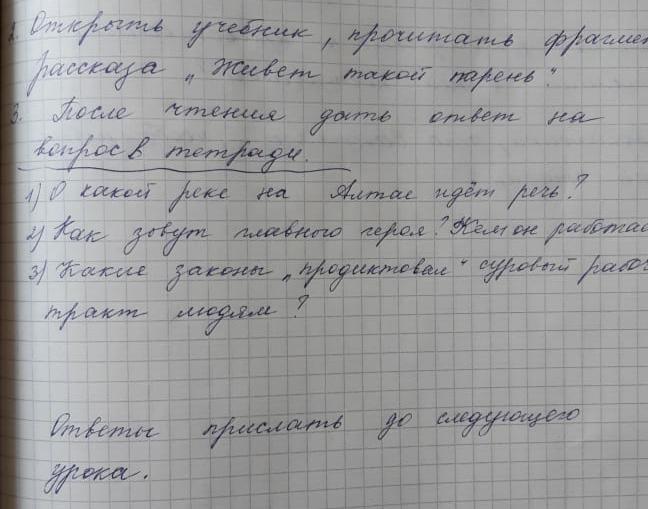 2. Открыть учебник, прочитать фрагмен
рассказа „Живет такой парень".
3. После чтения дать ответ на
вопрос в тетради.
1) О какой реке на Алтае идёт речь?
2) Как зовут главного героя? Кем он работае
3) Какие законы „продиктовал" суровый рабоч
тракт людям?
Ответы прислать до следующего
урока.